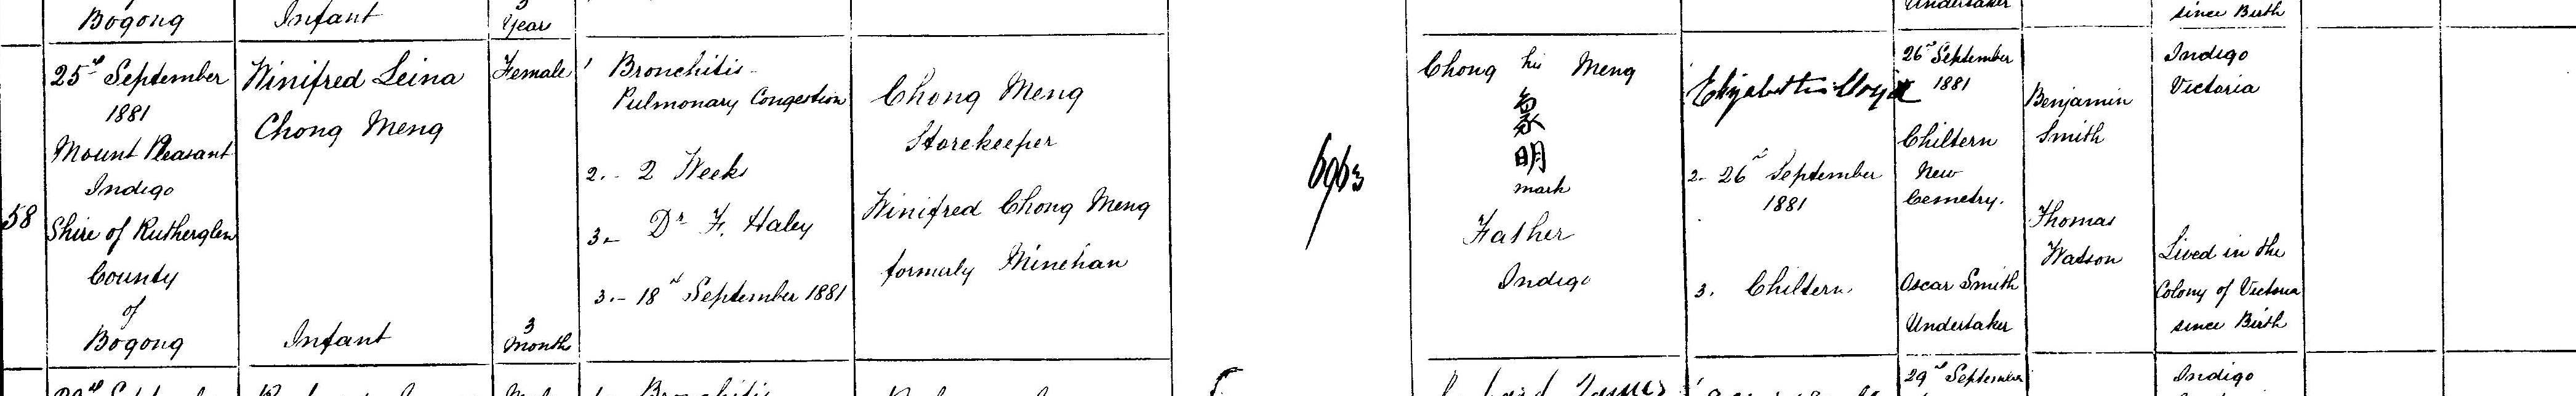 Bogong
Infant
3
Year
Undertaker
since Birth
58
25th September
1881
Mount Pleasant
Indigo
Shire of Rutherglen
County
of
Bogong
Winifred Leina
Chong Meng
Infant
Female
3
Month
1 Bronchitis
Pulmonary Congestion
2. 2 Weeks
3. Dr F. Haley
3. 18th September 1881
Chong Meng
Storekeeper
Winifred Chong Meng
formerly Minehan
6963
Chong his Meng
明
mark
Father
Indigo
2. 26th September
1881
3. Chiltern
26th September
1881
Chiltern
New
Cemetry.
Oscar Smith
Undertaker
Benjamin
Smith
Thomas
Watson
Indigo
Victoria
Lived in the
Colony of Victoria
since Birth
Bronchitis
29th September
Indigo